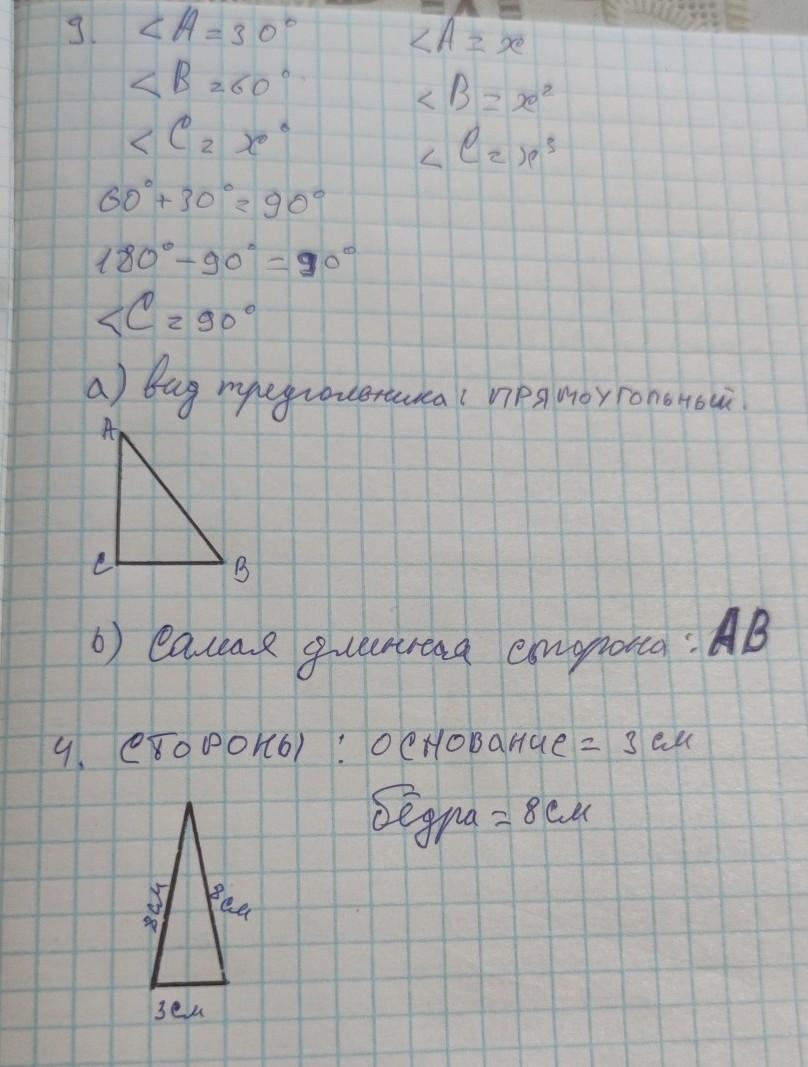 9. <A = 30° <A = x
<B = 60° <B = x²
<C = x° <C = x³
60° + 30° = 90°
180° - 90° = 90°
<C = 90°
а) вид треугольника: ПРЯМОУГОЛЬНЫЙ.
A
C B
b) Самая длинная сторона: AB
4. СТОРОНЫ: ОСНОВАНИЕ = 3 см
бёдра = 8 см
8 см 8 см
3 см